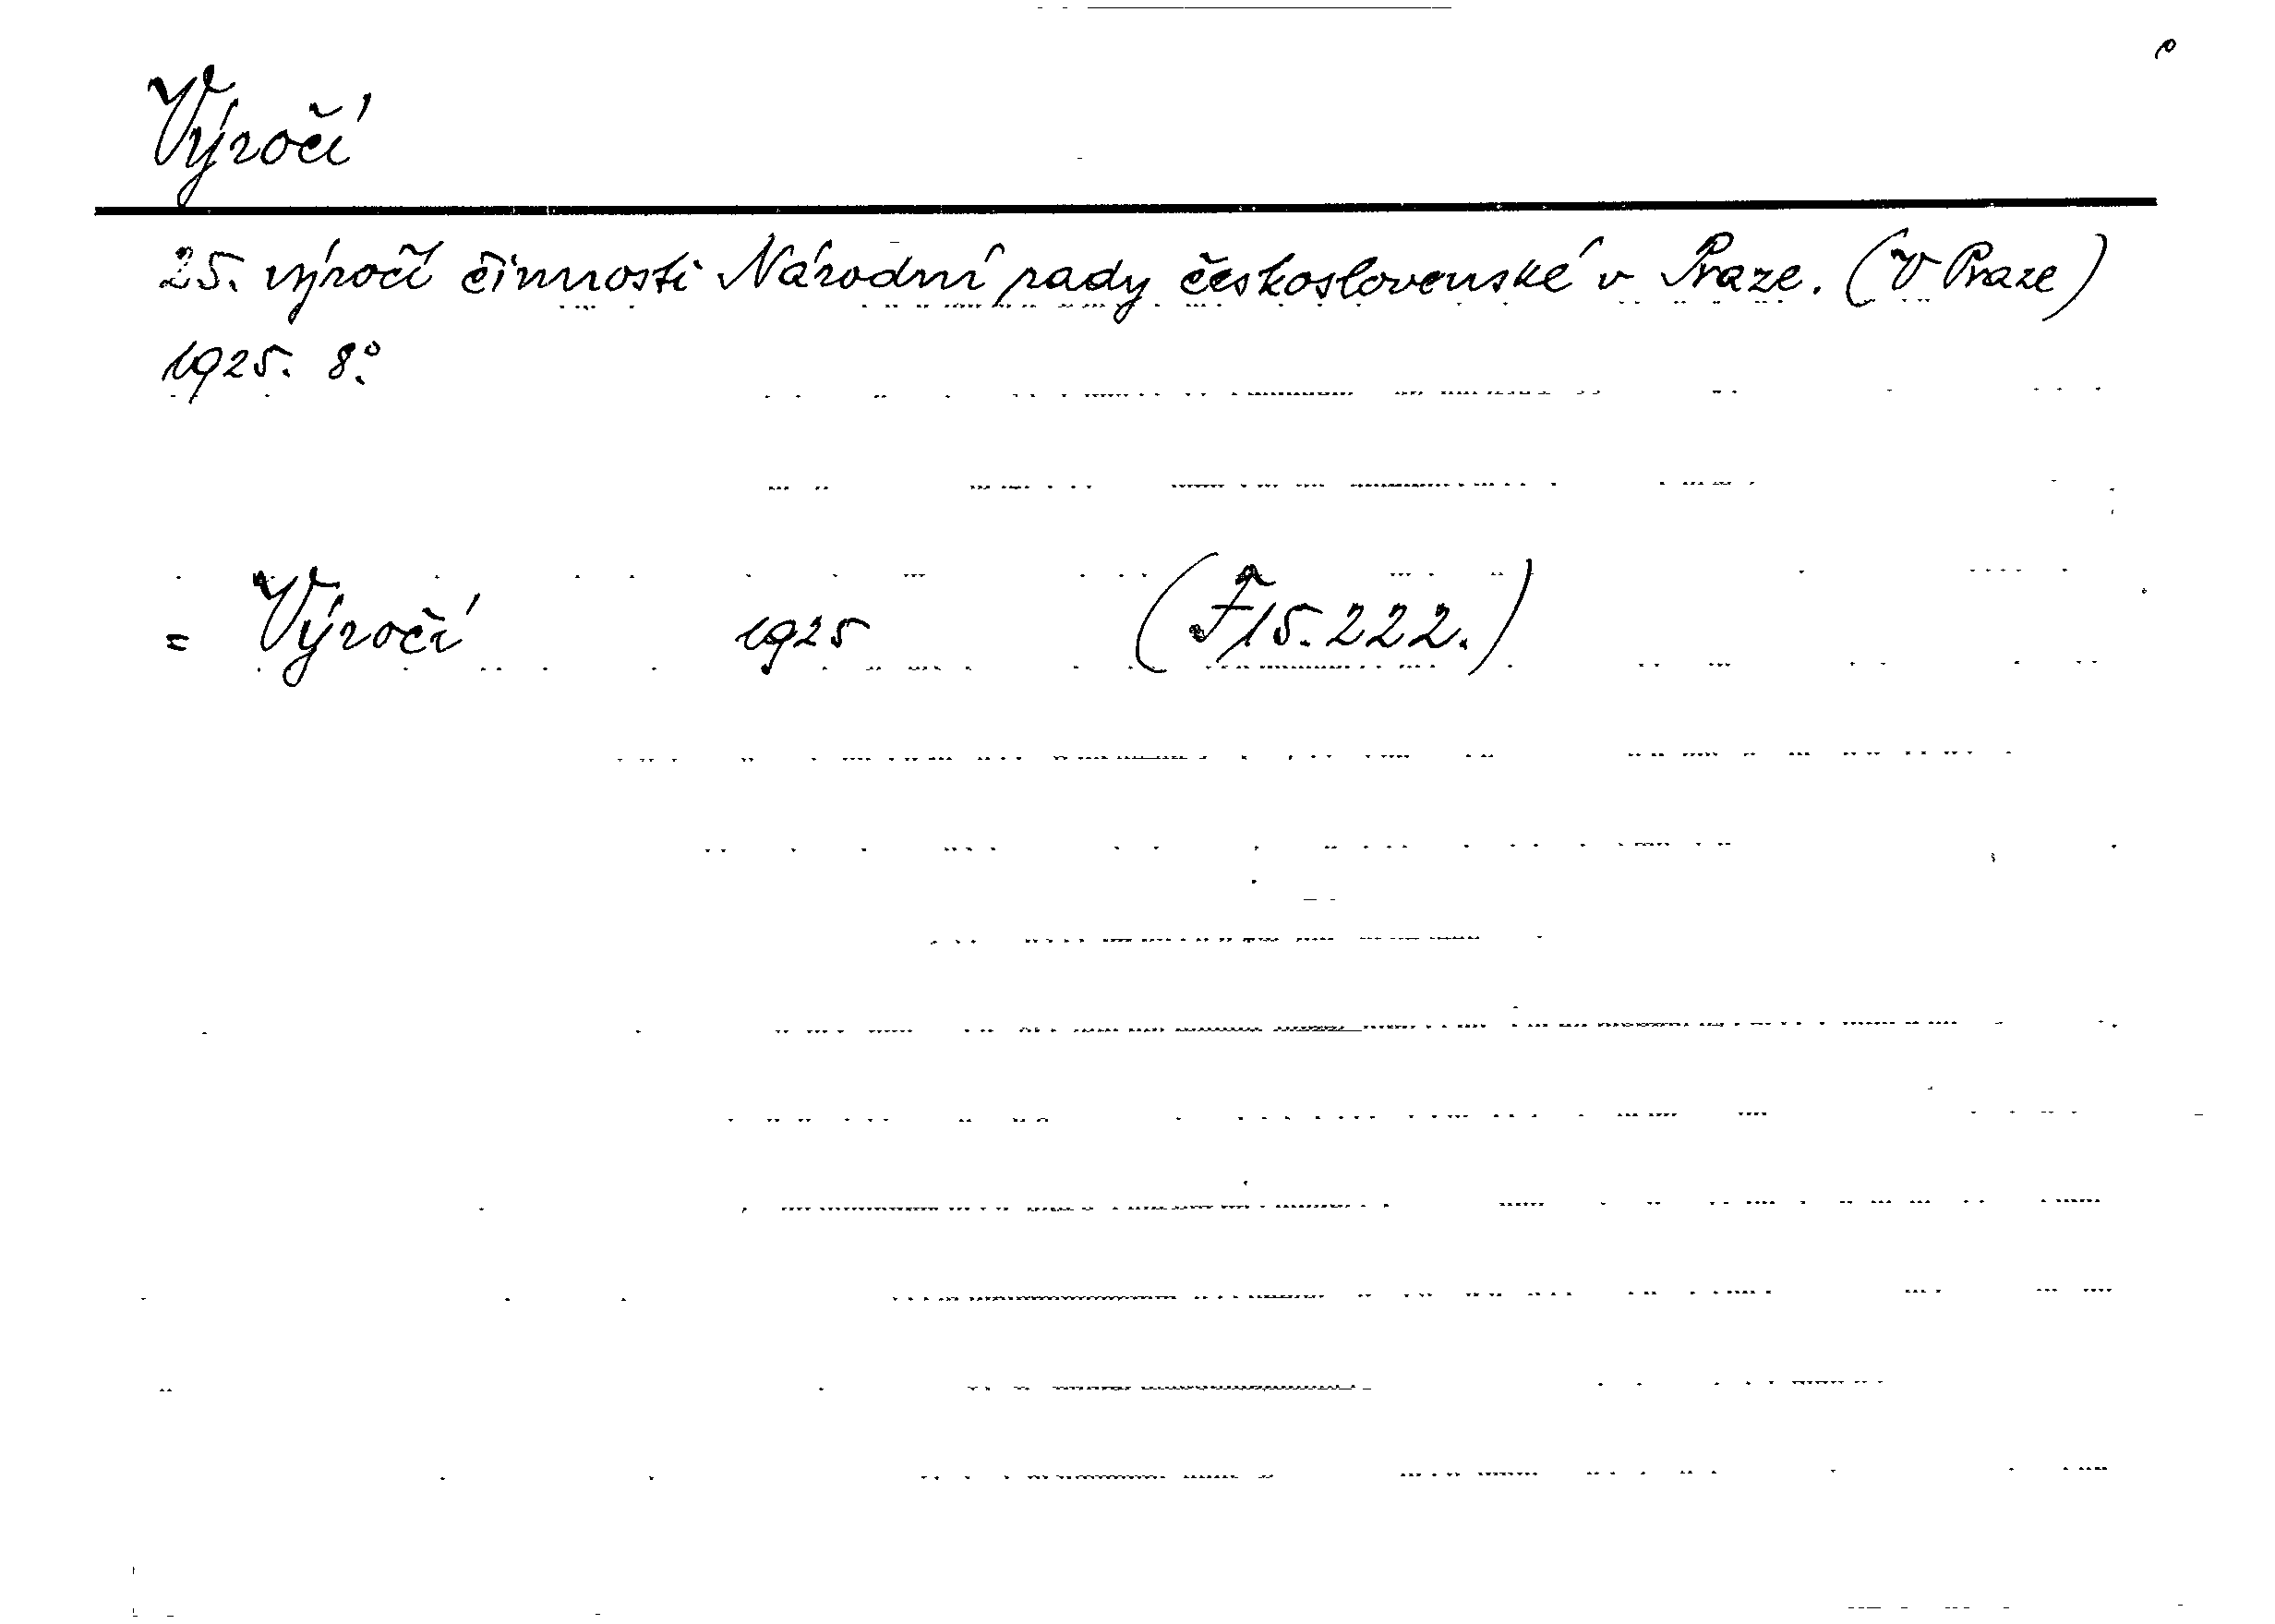 Výročí
25. výročí činnosti Národní rady československé v Praze. (V Praze)
1925. 8°.
= Výročí 1925 (F 15.222.)